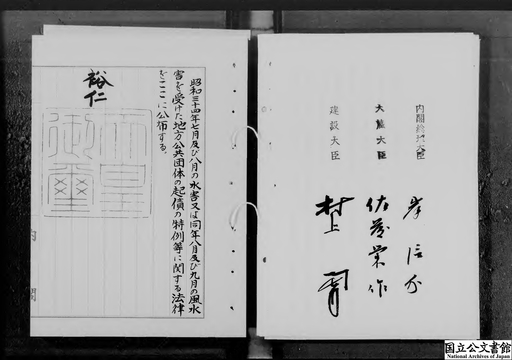 内閣総理大臣　岸信介
大蔵大臣　佐藤栄作
建設大臣　村上勇
昭和三十四年七月及び八月の水害又は同年八月及び九月の風水
害を受けた地方公共団体の起債の特例等に関する法律
をここに公布する。
裕仁
天皇
御璽
内閣
国立公文書館
National Archives of Japan